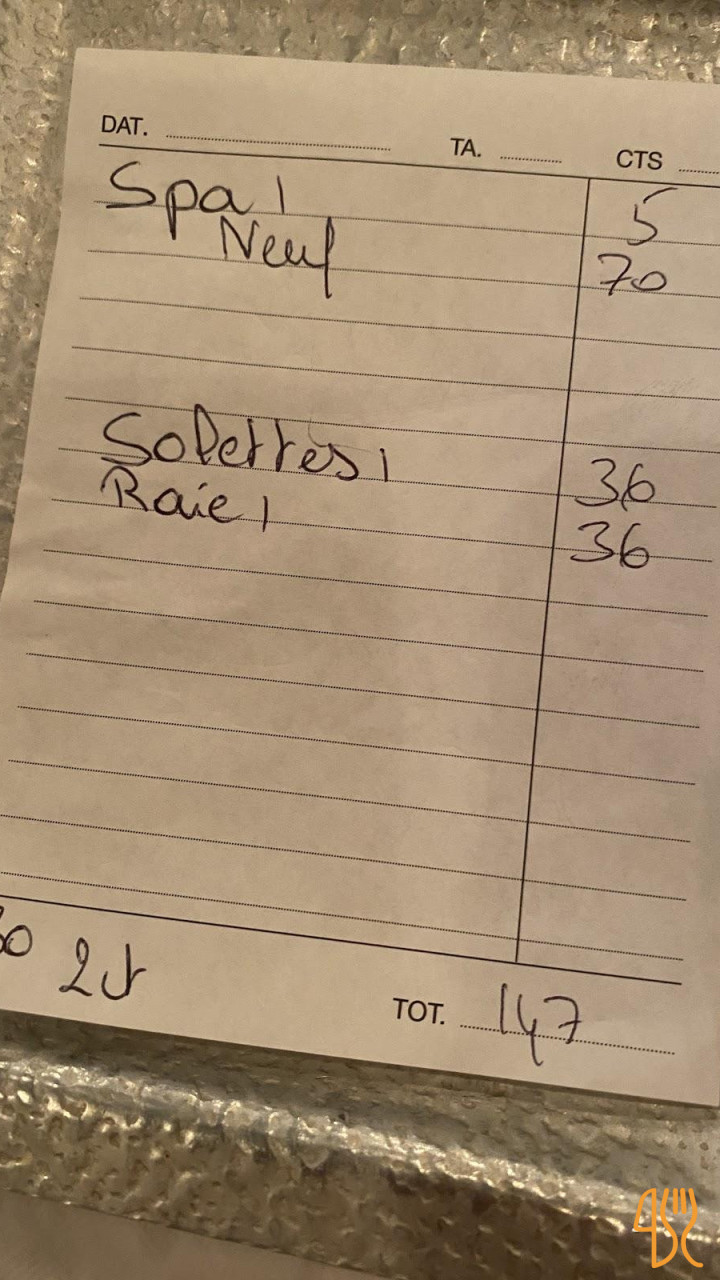 DAT. TA. CTS
Spa 1 5
Neuf 70
Solettes 1 36
Raie 1 36
TOT. 147